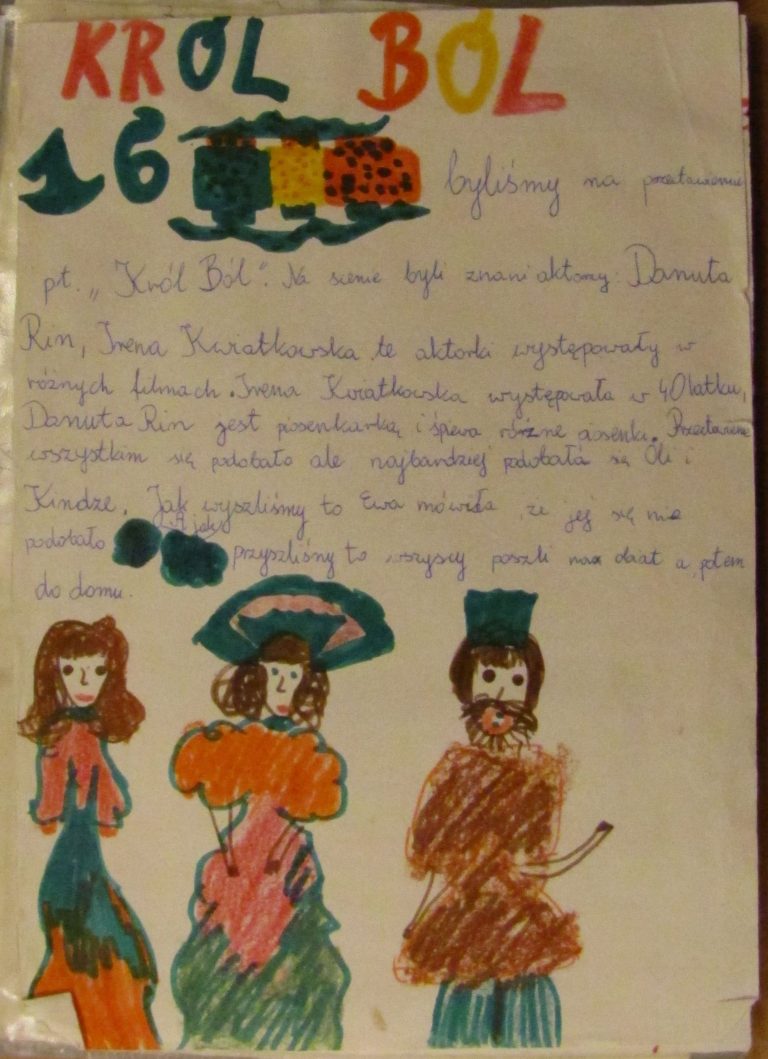 KRÓL BÓL
16 byliśmy na przstawieniu
pt. „Król Ból". Na scenie byli znani aktorzy: Danuta
Rin, Irena Kwiatkowska te aktorki występowały w
różnych filmach. Irena Kwiatkowska występowała w 40latku,
Danuta Rin jest piosenkarką i śpiewa różne piosenki. Przestawienie
wszystkim się podobało ale najbardziej podobała się Oli i
Kindze. Jak wyszliśmy to Ewa mówiła że jej się nie
podobało A jak przyszliśmy to wszyscy poszli na a potem
do domu.